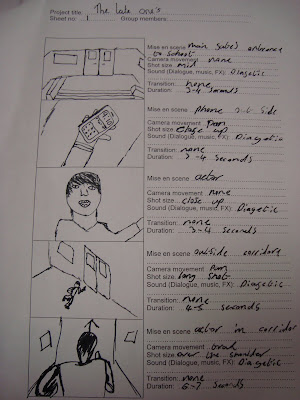 Project title: The late one's
Sheet no: 1 Group members:
Mise en scene main entrance
to school
Camera movement none
Shot size mid
Sound (Dialogue, music, FX): Diagetic
Transition: none
Duration: 3-4 seconds
Mise en scene phone side
Camera movement Pan
Shot size close up
Sound (Dialogue, music, FX): Diagetic
Transition: none
Duration: 3-4 seconds
Mise en scene actor
Camera movement none
Shot size close up
Sound (Dialogue, music, FX): Diagetic
Transition: none
Duration: 3-4 seconds
Mise en scene outside corridore
Camera movement Pan
Shot size long shot
Sound (Dialogue, music, FX): Diagetic
Transition: none
Duration: 4-5 seconds
Mise en scene actor in corridor
Camera movement
Shot size over the shoulder
Sound (Dialogue, music, FX): Diagetic
Transition: none
Duration: 6-7 seconds